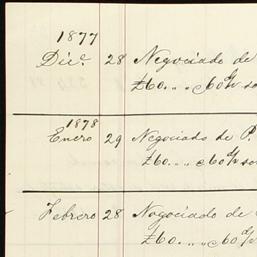 1877
Dice. 28 Negociado de
£60.. „ 60 d/v so
1878
Enero 29 Negociado de P.
£60.. „ 60 d/v so
Febrero 28 Negociado de
£60.. „ 60 d/v